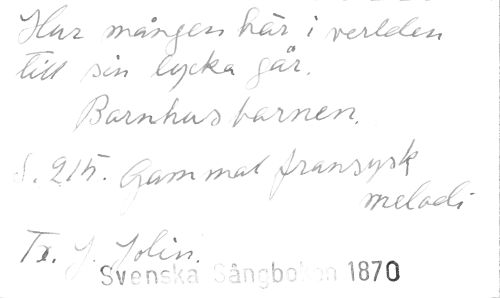 Hur mången här i verlden
till sin lycka går.
Barnhusbarnen.
S. 215. Gammal fransysk
melodi
Tx. J. Jolin.
Svenska Sångboken 1870